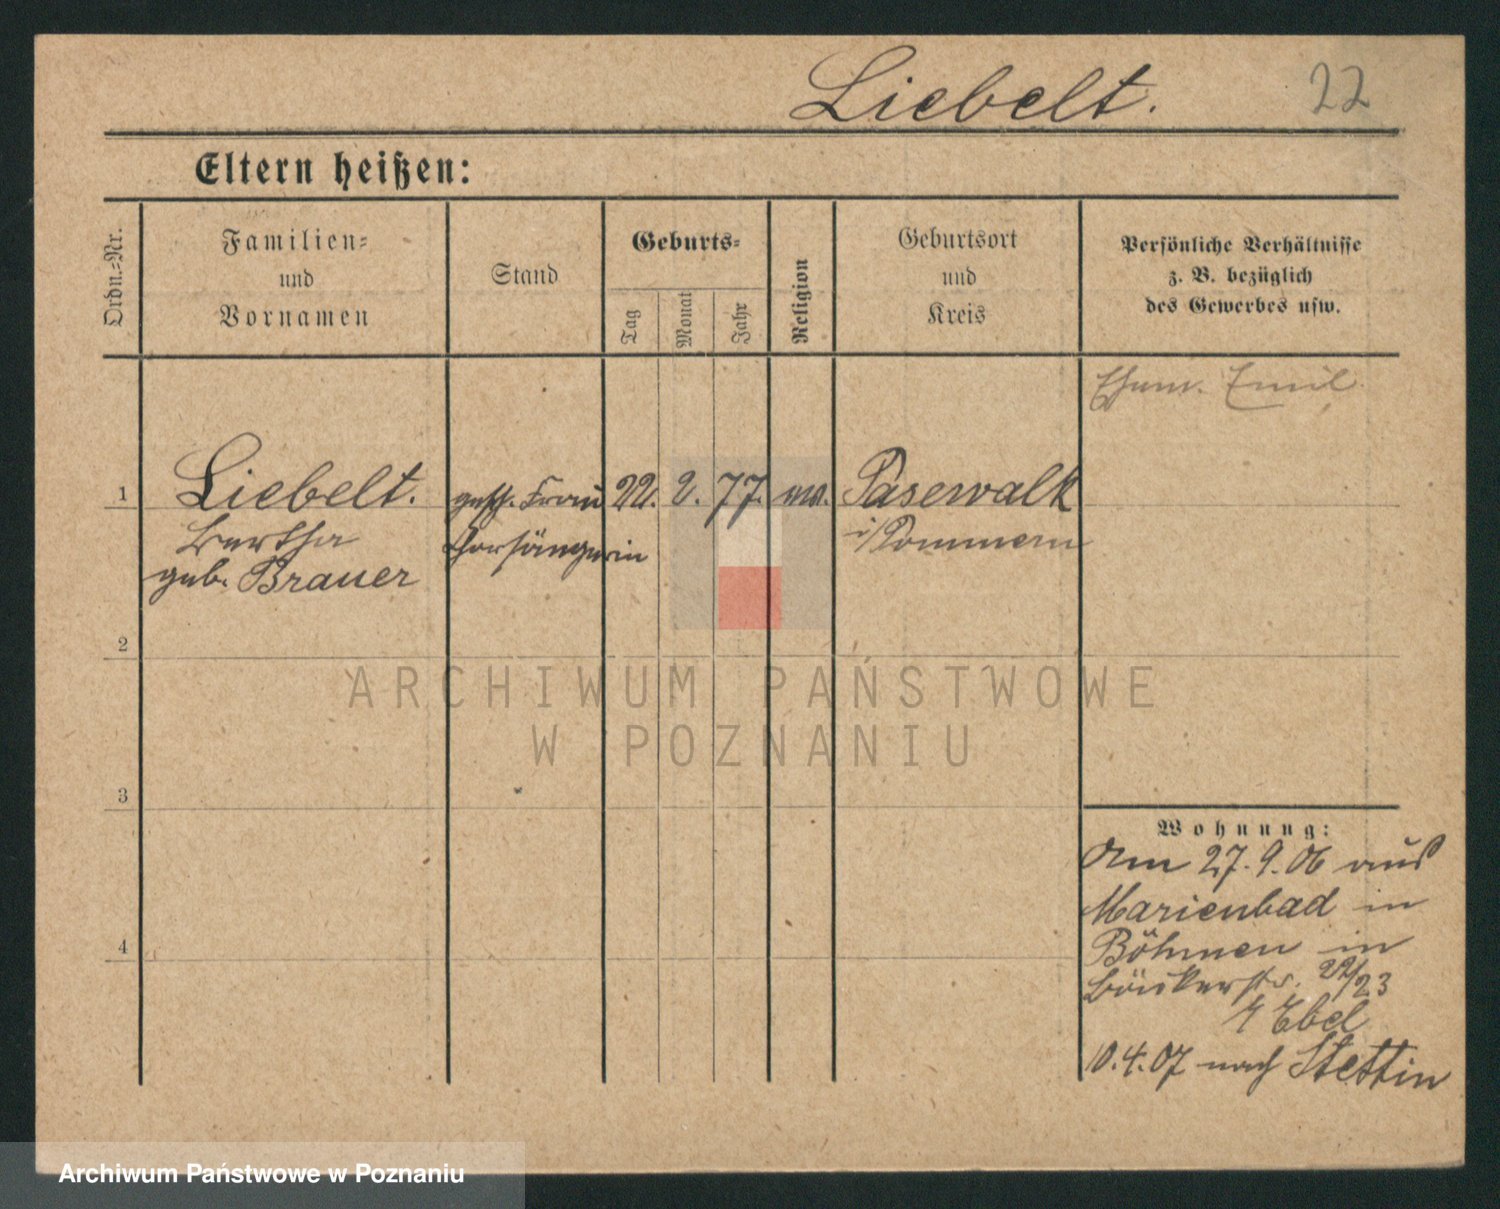 Liebelt. 22
Eltern heißen:
Ordn.=Nr.
Familien=
und
Vornamen
Stand
Geburts=
Tag
Monat
Jahr
Religion
Geburtsort
und
Kreis
Persönliche Verhältnisse
z. B. bezüglich
des Gewerbes usw.
Ehem. Emil
1 Liebelt. gesch. Frau 22. 2. 77. ev. Pasewalk
Bertha Chorsängerin i/Pommern
geb. Brauer
2
3
4
Wohnung:
Am 27.9.06 aus
Marienbad in
Böhmen in
Bäckerstr. 22/23
Ebel
10.4.07 nach Stettin
ARCHIWUM PAŃSTWOWE
W POZNANIU
Archiwum Państwowe w Poznaniu